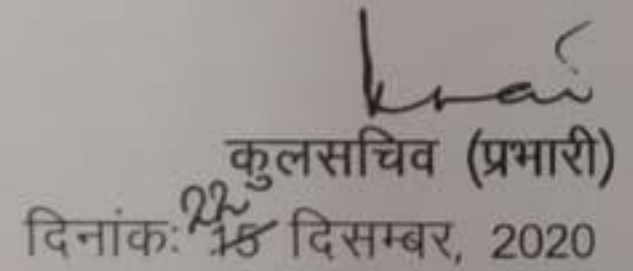 कुलसचिव (प्रभारी)
दिनांक: 22 दिसम्बर, 2020